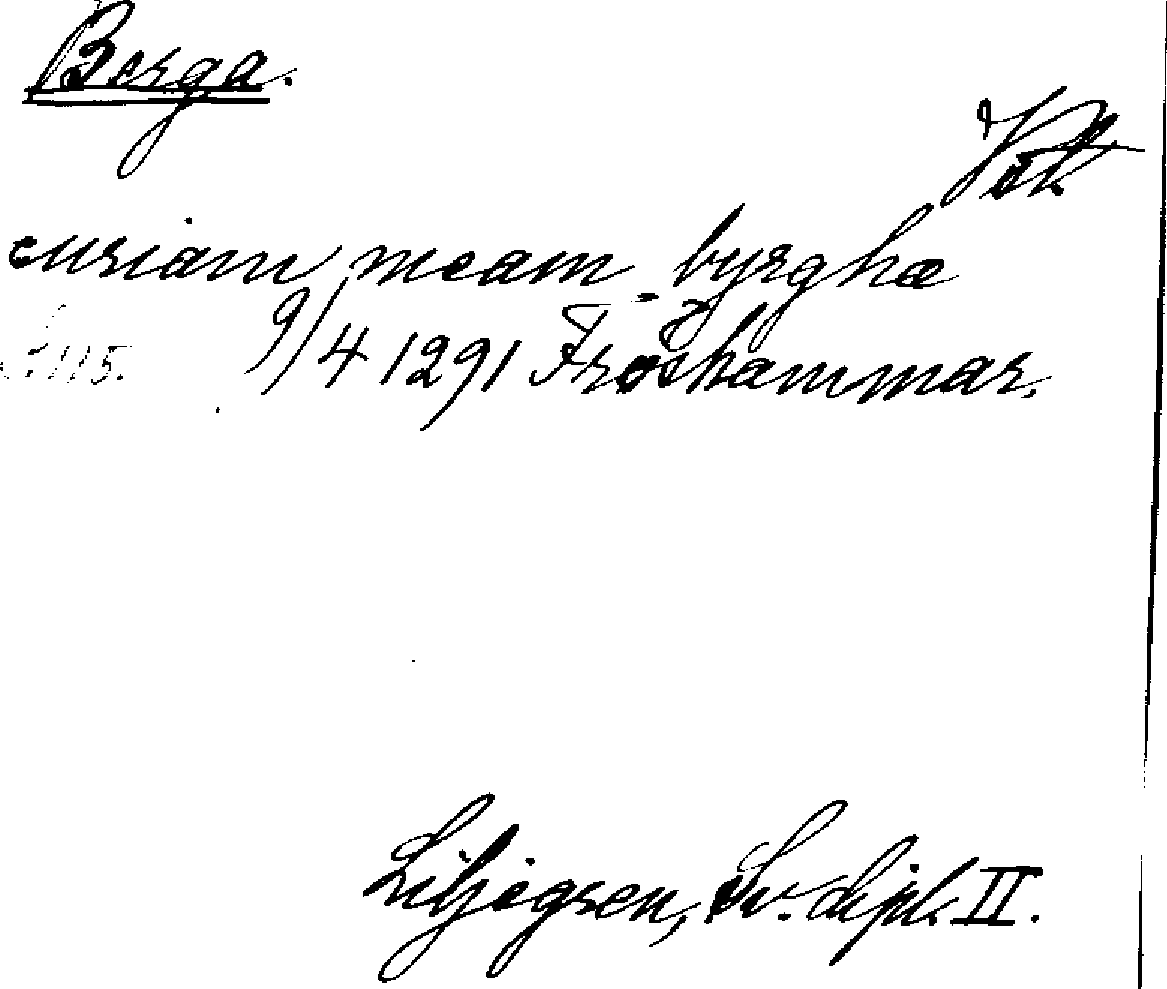 Berga.
curiam meam - byrghæ
S. 115. 9/4 1291 Fröshammar.
Liljegren, Sv. dipl. II.